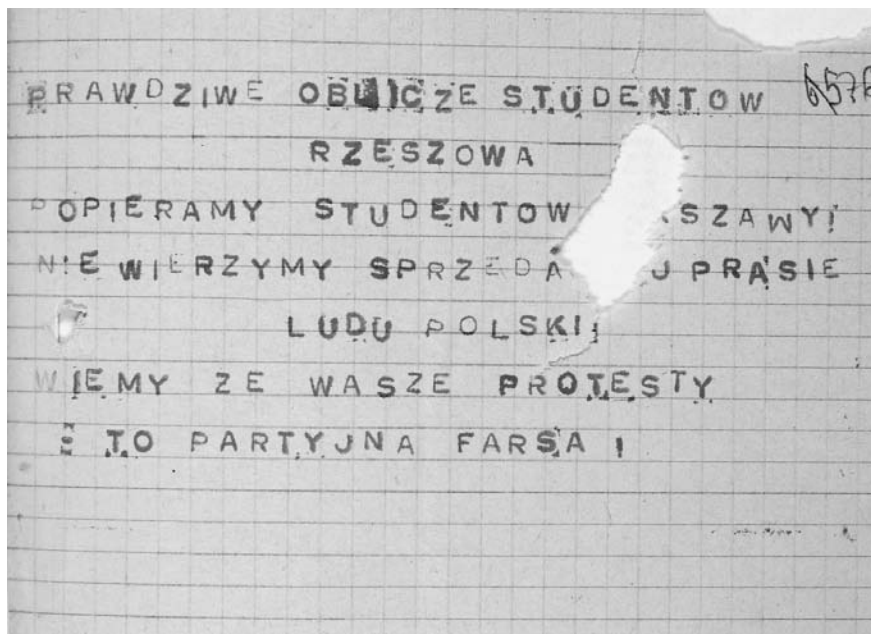 PRAWDZIWE OBLICZE STUDENTOW
RZESZOWA
POPIERAMY STUDENTOW SZAWY!
NIE WIERZYMY SPRZEDA U PRASIE
LUDU POLSKI!
WIEMY ZE WASZE PROTESTY
TO PARTYJNA FARSA!